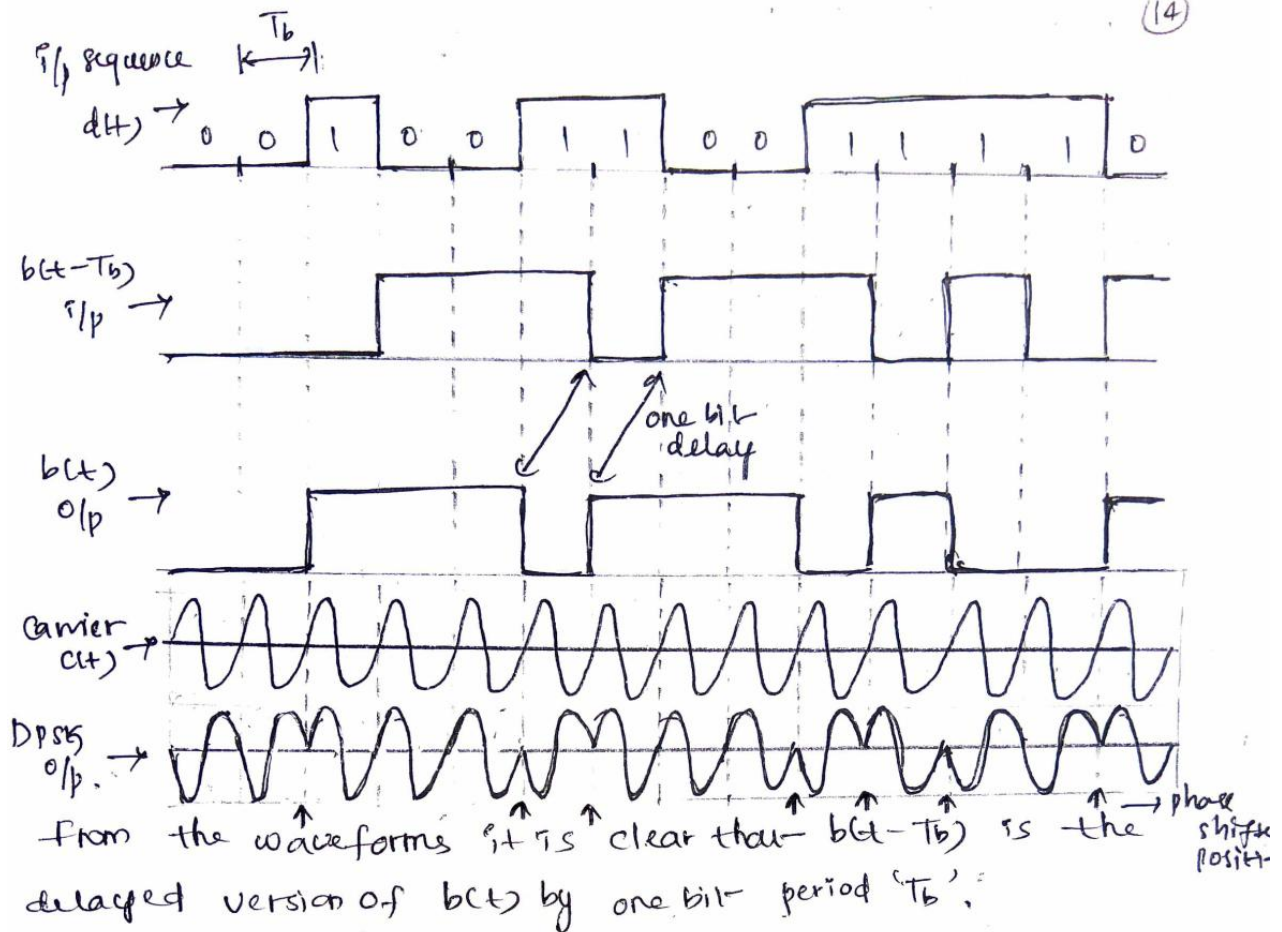 14
Tb
i/p sequence
d(t) →
0 0 1 0 0 1 1 0 0 1 1 1 1 0
b(t-Tb)
i/p →
one bit
delay
b(t)
o/p →
Carrier
c(t) →
DPSK
o/p. →
→ phase
shift
From the waveforms it is clear that b(t-Tb) is the
delayed version of b(t) by one bit period 'Tb'.